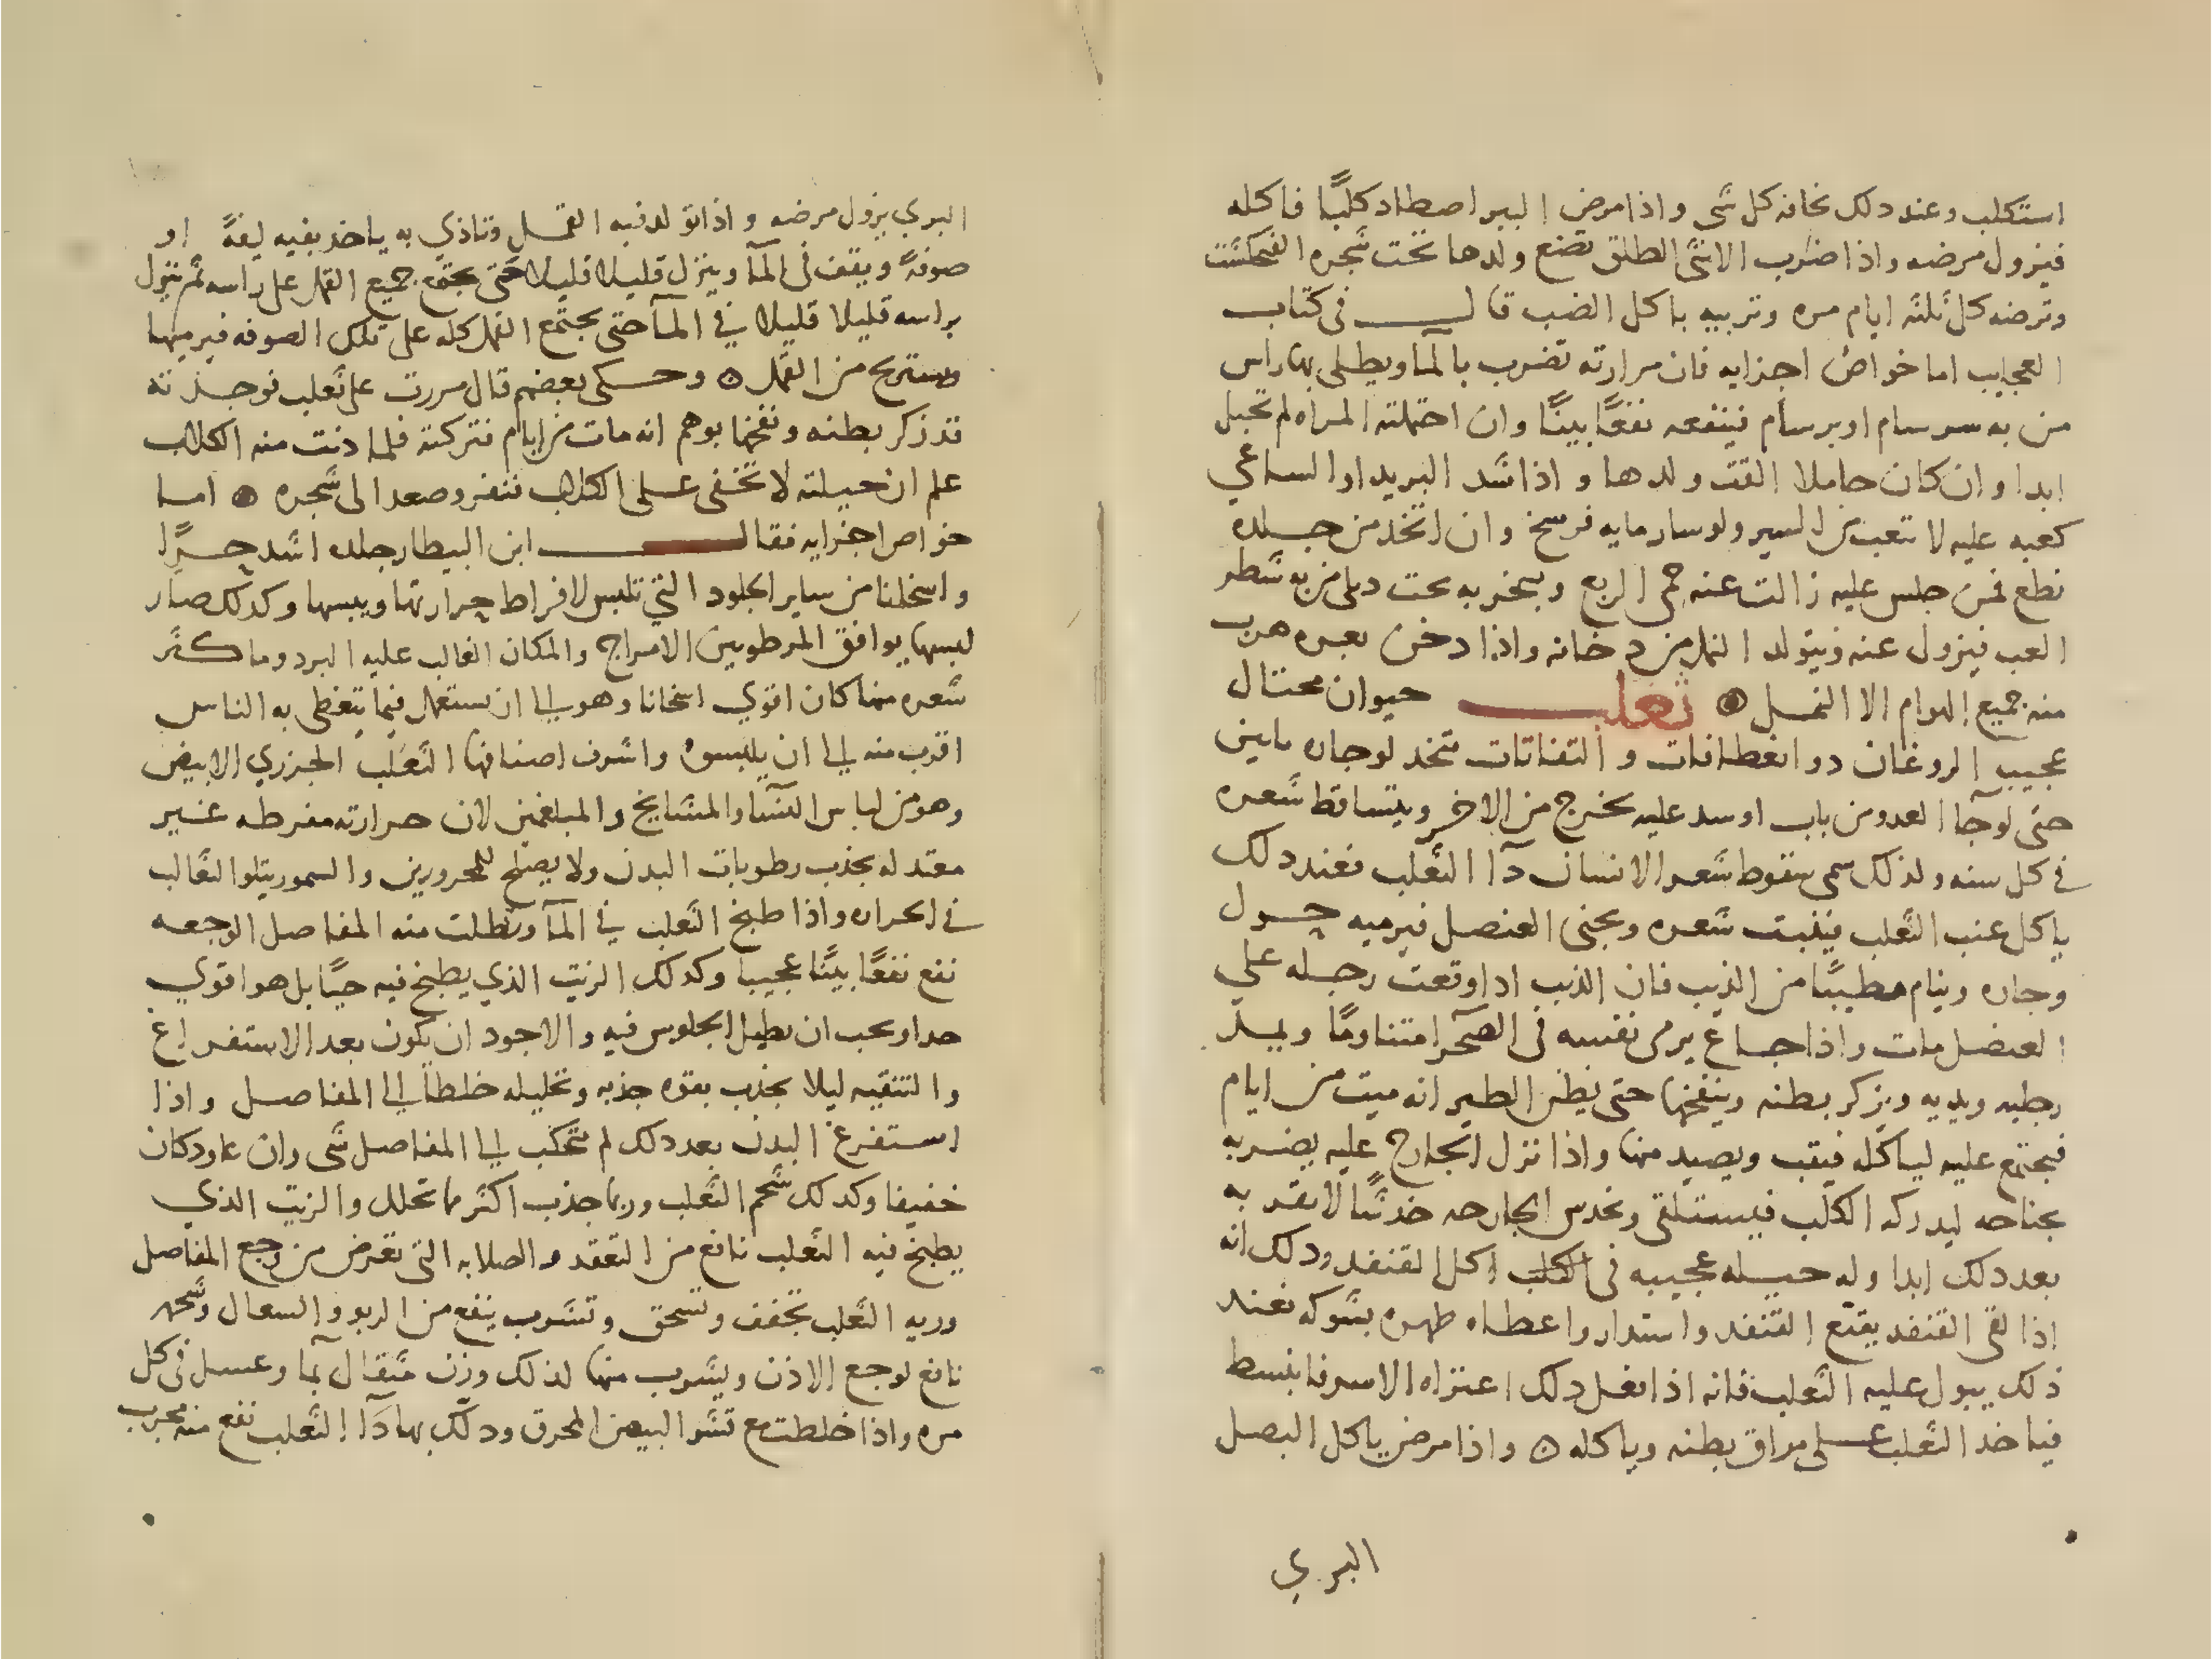 استكلب وعند دلك تخافه كل شى واذا مرض الببر اصطاد كلبًا فاكله
فيزول مرضه واذا ضرب الانثى الطلق تضع ولدها تحت شجره الفنجكشت
وترضعه كل ثلثه ايام مره وتربيه باكل الضب قالــــ فى كتاب
العجايب اما خواص اجزايه فان مرارته تضرب بالمآ ويطلى بها راس
من به سرسام او برسام فينفعه نفعًا بينًا وان احتملته المراه لم تحبل
ابدا وان كان حاملا القت ولدها واذا شد البريد او الساعي
كعبه عليه لا تتعب من السير ولو سار مايه فرسخ وان اتخذ من جلده
نطع فمن جلس عليه زالت عنه حمى الربع وبخر به تحت
فيزول عنه ويتولد النمل من دخانه واذا دخن بعره هرب
منه جميع الهوام الا النمل ۞ ثعلبـــــ حيوان محتال
عجيب الروغان دو انعطافات والتفاتات متخد لوجاره بابين
حتى لو جآ العدو من باب او سد عليه يخرج من الاخر ويتساقط شعره
فى كل سنه ولذلك سمى سقوط شعر الانسان دآ الثعلب فعند دلك
ياكل عنب الثعلب فينبت شعره ويجنى العنصل فيرميه حول
وجاره وينام مطيبًا من الذيب فان الذيب ادا وقعت رجله على
العنصل مات واذا جاع يرمى نفسه فى الصحرا متناومًا ويمد
رجليه ويديه ويزكر بطنه وينفخها حتى يظن الطير انه ميت من ايام
فيجتمع عليه لياكله فيثب ويصيد منها واذا نزل الجارح عليه يضربه
بجناحه ليدركه الكلب فيستلقى ويخدس الجارحه خدشًا لا تقربه
بعد دلك ابدا وله حيله عجيبه فى اكل القنفد ودلك انه
اذا لقى القنفد يقبع القنفد واستدار واعطاه ظهره بشوكه فعند
ذلك يبول عليه الثعلب فانه اذا فعل دلك اعتراه الاسر فانبسط
فياخد الثعلب على مراق بطنه وياكله ۞ واذا مرض ياكل البصل
البري
البري يزول مرضه واذا تولد فيه القمل وتاذي به ياخد بفيه ليفةً او
صوفةً ويقف فى المآ وينزل قليلا قليلا حتى يجتمع جميع القمل على راسه ثم ينزل
براسه قليلا قليلا في المآ حتى يجتمع القمل كله على تلك الصوفه فيرميها
ويستريح من القمل ۞ وحكى بعضهم قال مررت على ثعلب فوجدته
قد زكر بطنه ونفخها يوهم انه مات من ايام فتركته فلما دنت منه الكلاب
علم ان حيلته لا تخفى على الكلاب فنفر وصعد الى شجره ۞ اما
خواص اجزايه فقالـــــ ابن البيطار جلده اشد حرًّا
واسخانا من ساير الجلود التي تلبس لافراط حرارتها ويبسها وكدلك صار
لبسها يوافق المرطوبين الامزاج والمكان الغالب عليه البرد وما كثر
شعره منها كان اقوي اسخانا وهو الى ان يستعمل فيما يتغطى به الناس
اقرب منه الى ان يلبسوه واشرف اصنافها الثعلب الجزري الابيض
وهو من لباس النسآ والمشايخ والمبلغمين لان حرارته مفرطه غير
معتدله يجذب رطوبات البدن ولا يصلح للمحرورين والسمور يتلوا الثعالب
فى الحراره واذا طبخ الثعلب في المآ ونطلت منه المفاصل الوجعه
نفع نفعًا بينًا عجيبا وكدلك الزيت الذي يطبخ فيه حيًا بل هو اقوي
جدا ويجب ان يطيل الجلوس فيه والاجود ان يكون بعد الاستفراغ
والتنقيه ليلا يجذب بقوه جذبه وتحليله خلطا الى المفاصل واذا
استفرغ البدن بعد دلك لم ينحلب الى المفاصل شى وان عاود كان
خفيفا وكدلك شحم الثعلب وربما جذب اكثر مما تحلل والزيت الذي
يطبخ فيه الثعلب نافع من التعقد والصلابه التى تعرض من وجع المفاصل
وريه الثعلب تجفف وتسحق وتشرب ينفع من الربو والسعال وشحمه
نافع لوجع الاذن ويشرب منها لذلك وزن مثقال بما وعسل فى كل
مره واذا خلطت مع قشر البيض المحرق ودلك بها دآ الثعلب نفع منه مجرب